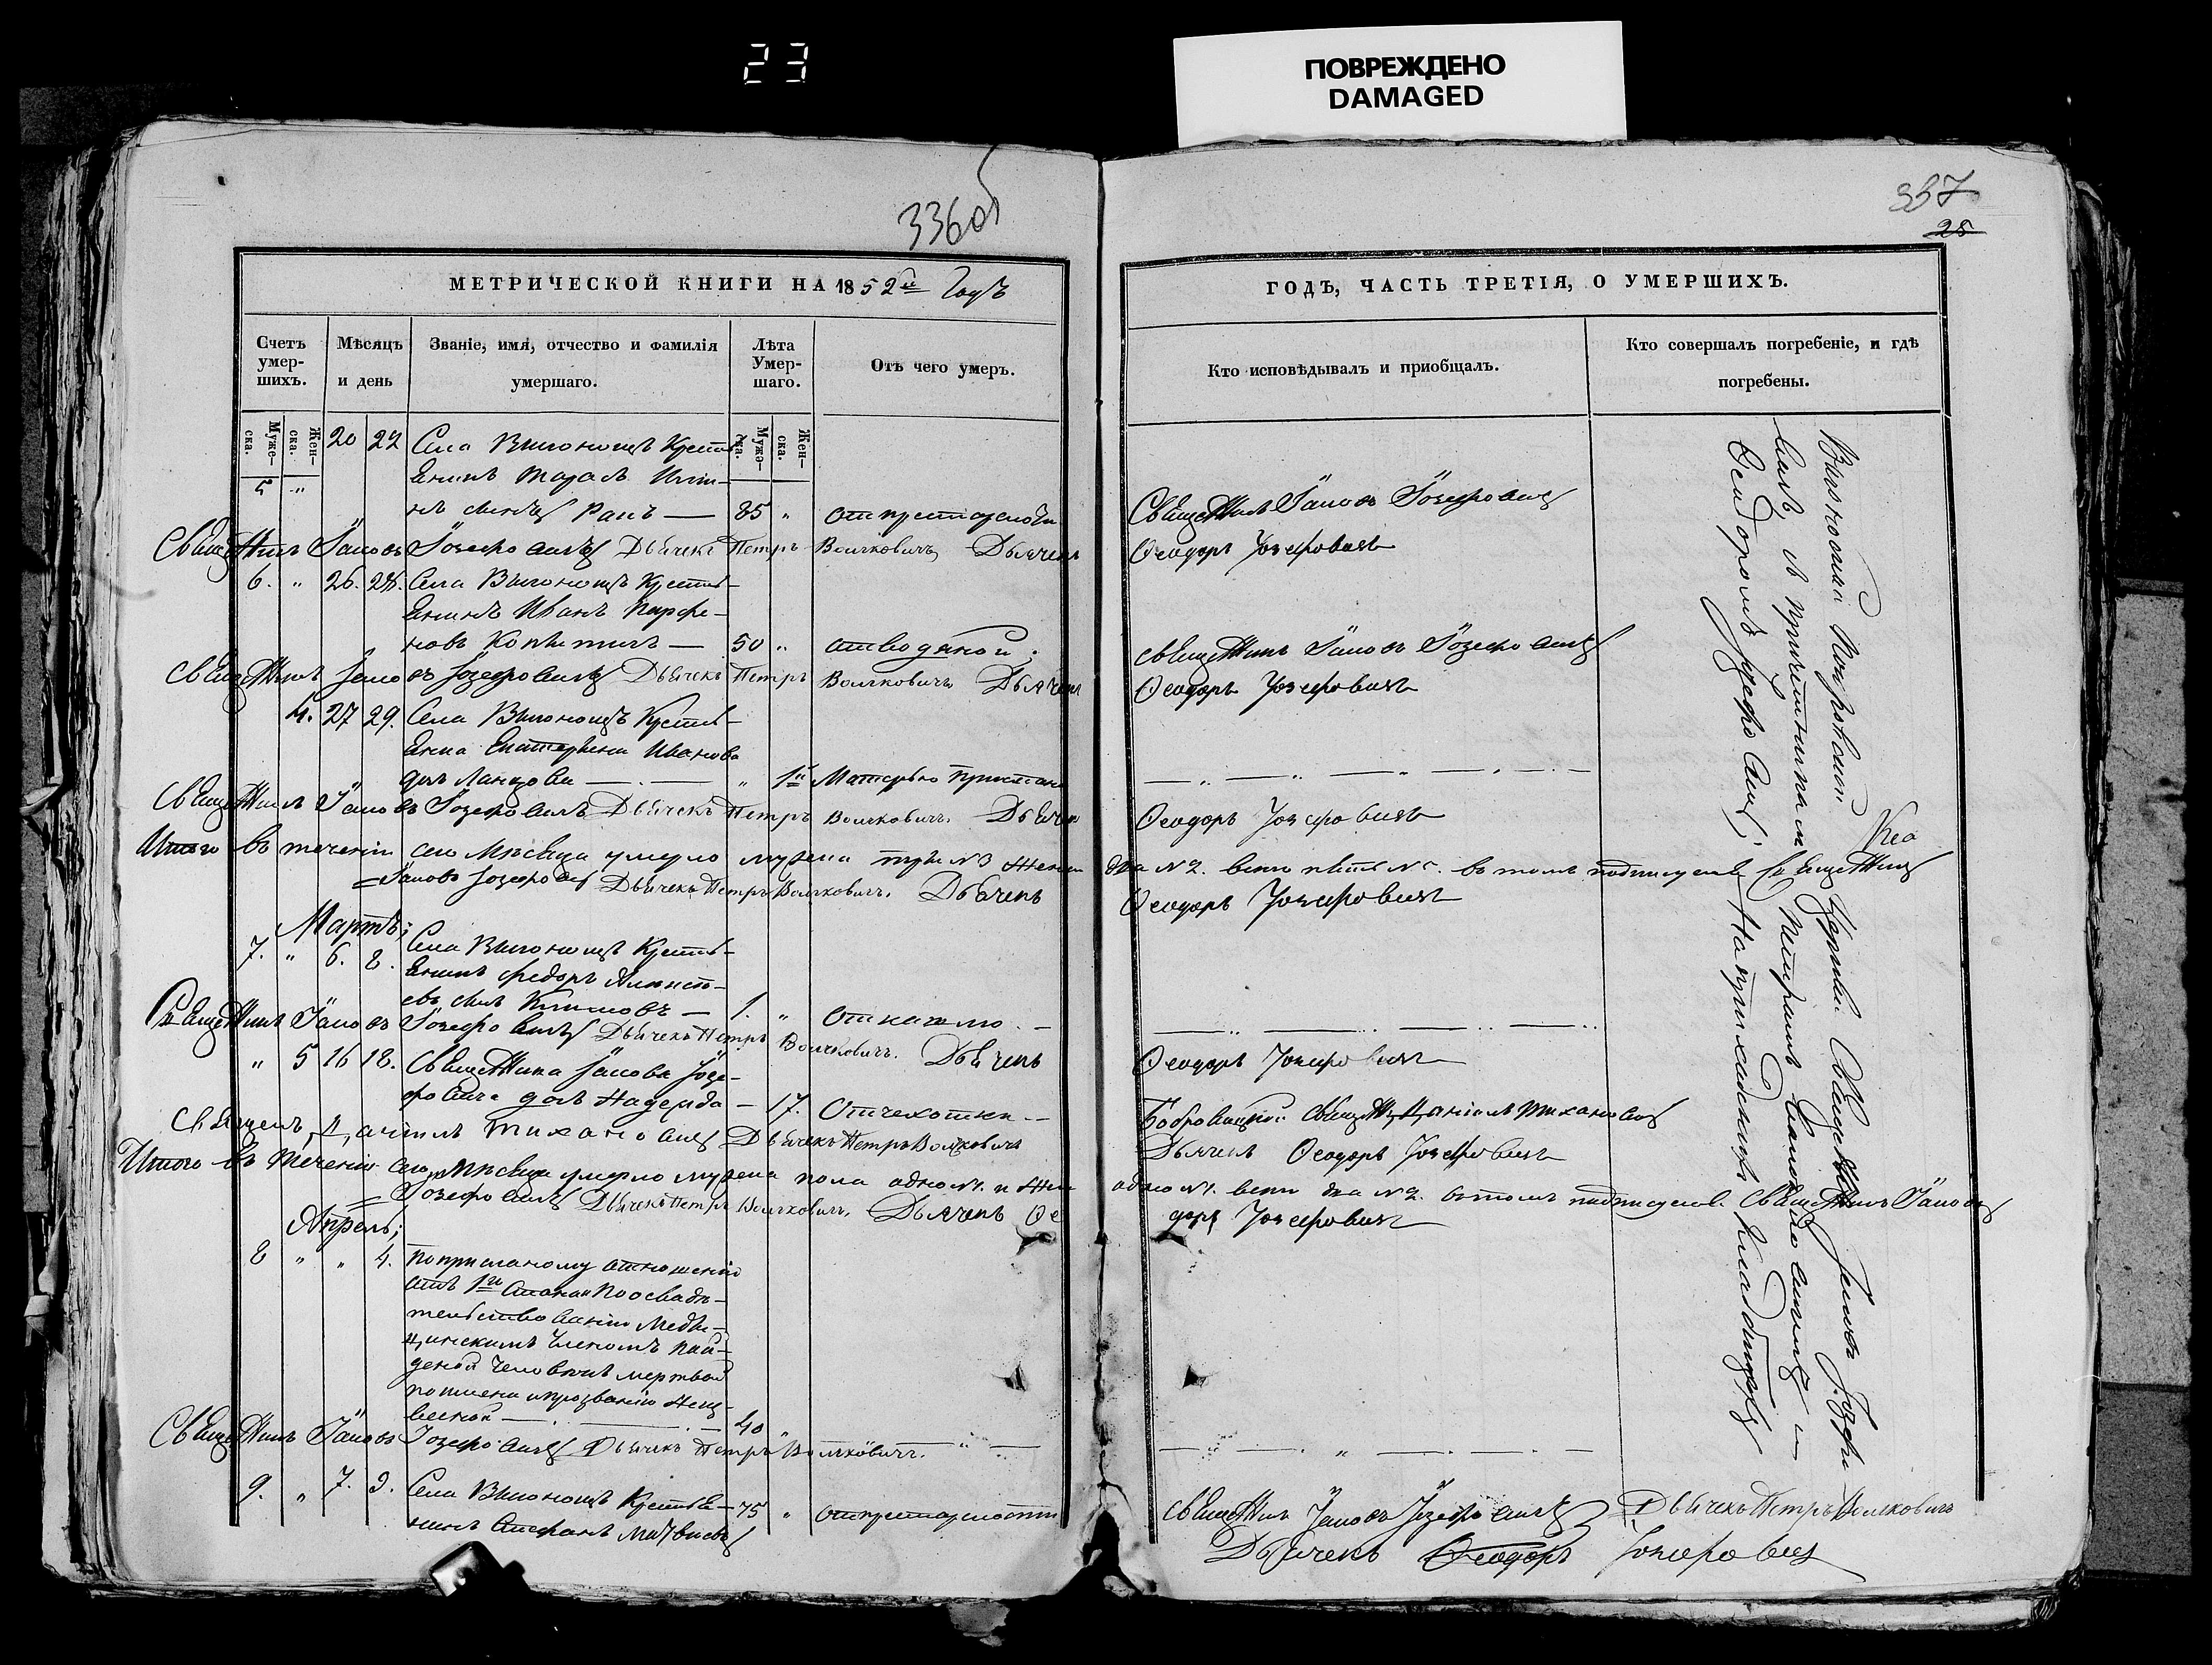 23
ПОВРЕЖДЕНО
DAMAGED
336об
337
25
МЕТРИЧЕСКОЙ КНИГИ НА 1852й Годъ
ГОДЪ, ЧАСТЬ ТРЕТІЯ, О УМЕРШИХЪ.
Счетъ умер-шихъ.
Мѣсяцъ и день
Званіе, имя, отчество и фамилія умершаго.
Лѣта Умер-шаго.
Отъ чего умеръ.
Кто исповѣдывалъ и приобщалъ.
Кто совершалъ погребеніе, и гдѣ погребены.
Муже-ска.
Жен-ска.
Муже-ска.
Жен-ска.
5 " 20 22 Села Выгонощъ Кресть-
85 " отпрестарелости
Священникъ Іаковъ Іозефовичъ
Священникъ Іаковъ Іозефовичъ Дьячекъ Петръ Волчковичъ Дьячекъ
Ѳеодоръ Іозефовичъ
6. " 26. 28. Села Выгонощъ Кресть-
янинъ Иванъ Парфе-
новъ — 50 " отводяной.
священникъ Іаковъ Іозефовичъ
Священникъ Іаковъ Іозефовичъ Дьячекъ Петръ Волчковичъ Дьячекъ
Ѳеодоръ Іозефовичъ
4. 27 29. Села Выгонощъ Кресть-
янка Екатерина Иванова
"
Священникъ Іаковъ Іозефовичъ Дьячекъ Петръ Волчковичъ. Дьячекъ
Ѳеодоръ Іозефовичъ
Итого въ теченіи сего Мѣсяца умерло мужеска три №3 женска
два №2. всего пять №5. въ томъ подписуемся Священникъ
Іаковъ Іозефовичъ Дьячекъ Петръ Волчковичъ. Дьячекъ
Ѳеодоръ Іозефовичъ
Мартъ;
7. " 6. 8. Села Выгонощъ Кресть-
янинъ Федоръ
— 1. " Откашлю. —
Священникъ Іаковъ Іозефовичъ Дьячекъ Петръ Волчковичъ. Дьячекъ
Ѳеодоръ Іозефовичъ
" 5 16 18. Священника Іакова Іозе-
фовича дочь Надежда — 17. Отчехотки —
Бобровицкой Священникъ
Дьячекъ Петръ Волчковичъ
Дьячекъ Ѳеодоръ Іозефовичъ
Итого въ теченіи сего Мѣсяца умерло мужеска пола одно №1. и жен
одно №1. всего два №2. вътомъ подписуемся. Священникъ Іаковъ
Іозефовичъ Дьячекъ Петръ Волчковичъ. Дьячекъ Ѳе
доръ Іозефовичъ
Апрель;
8 " " 4. поприсланому отношенію
отъ 1го Стана Поосвидѣ-
тельствованію Меди-
цинскимъ членомъ най-
деной человѣкъ мертвой
поимени ипрозванію Неиз-
вестной — 40 "
Священникъ Іаковъ Іозефовичъ Дьячекъ Петръ Волчковичъ.
9. " 7. 9. Села Выгонощъ Крестья-
нинъ Стефанъ Матвиевъ
75 " отпрестарелости
священникъ Іаковъ Іозефовичъ Дьячекъ Петръ Волчковичъ
Дьячекъ Ѳеодоръ Іозефовичъ
Выгонощской Покровской Церкви Священникъ Іаковъ Іозефо
вичъ, съ причетниками Петромъ Волчковичемъ и
Ѳеодоромъ Іозефовичъ; На приходскомъ Кладбищѣ